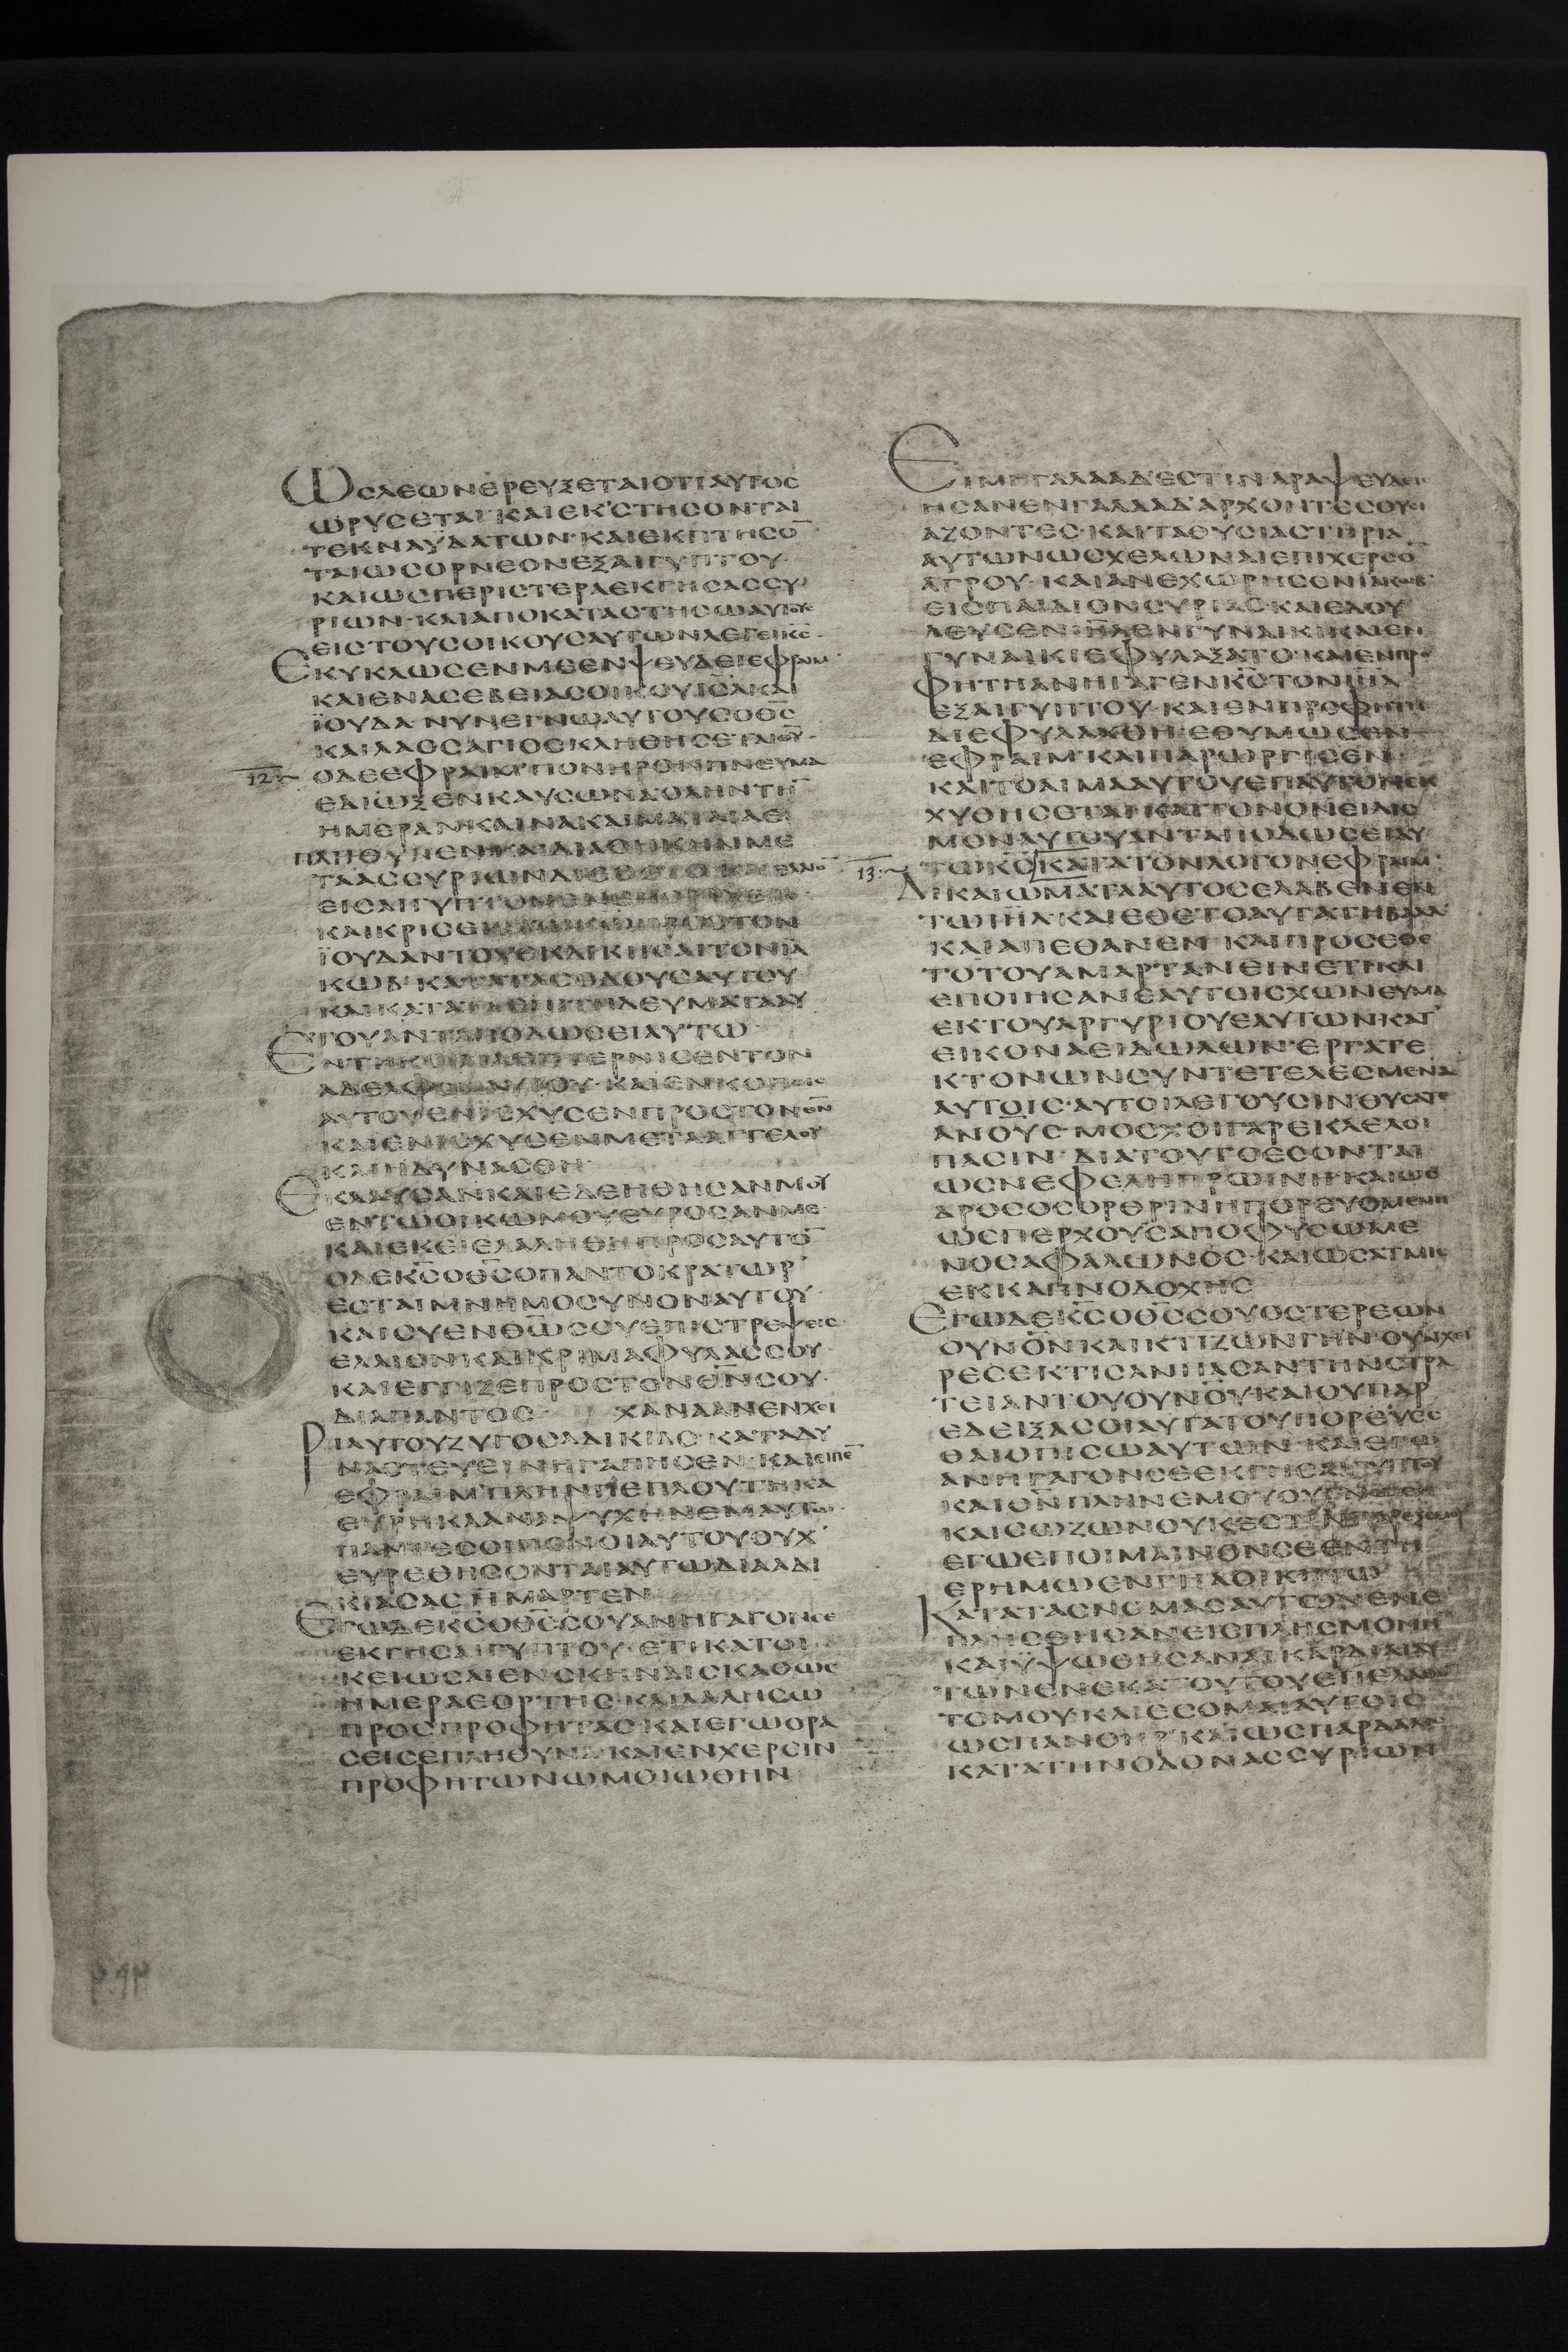 ωϲλεωνερευξεταιοτιαυτοϲ
ωρυϲεται·καιεκϲτηϲονται
τεκναϋδατων·καιεκπτηϲο̅
ταιωϲορνεονεξαιγυπτου·
καιωϲπεριϲτεραεκγηϲαϲϲυ
ριων·καιαποκαταϲτηϲωαυτουϲ
ειϲτουϲοικουϲαυτωνλεγεικ̅ϲ̅·
εκυκλωϲενμεενψευδειεφραιμ·
καιεναϲεβειαϲοικουι̅η̅λ̅και
ϊουδα·νυνεγνωαυτουϲοθ̅ϲ̅
καιλαοϲαγιοϲκληθηϲεταιθ̅υ̅·
12:~ οδεεφραιμ'πονηρονπνευμα
εδιωξενκαυϲωνα·οληντη̅
ημεραν·
ταϲϲυριων
ειϲαιγυπτον
καικριϲιϲ
ϊουδαντουεκδικηϲαιτονϊα
κωβ'καταταϲοδουϲαυτου
και
τουανταποδωϲειαυτω·
εντηκοιλιαεπτερνιϲεντον
αδελφοναυτου·καιενκοποιϲ
αυτουενιϲχυϲενπροϲτονθ̅ν̅
καιενιϲχυϲενμετααγγελου
καιηδυναϲθη·
εκλαυϲανκαιεδεηθηϲανμου
εντωοικωμουευροϲανμε·
καιεκειελαληθηπροϲαυτο̅
οδεκ̅ϲ̅οθ̅ϲ̅οπαντοκρατωρ
εϲταιμνημοϲυνοναυτου·
καιϲυενθ̅ω̅ϲουεπιϲτρεψειϲ·
ελαιονκαικριμαφυλαϲϲου·
καιεγγιζεπροϲτονθ̅ν̅ϲου·
διαπαντοϲ· χανααν'ενχει
ριαυτουζυγοϲαδικιαϲ·καταδυ
ναϲτευεινηγαπηϲεν·καιειπε̅
εφραιμ'πληνπεπλουτηκα
ευρηκααναψυχηνεμαυτω·
παντεϲοιπονοιαυτουουχ'
ευρεθηϲονταιαυτωδιααδι
κιαϲαϲημαρτεν
εγωδεκ̅ϲ̅οθ̅ϲ̅ϲουανηγαγονϲε
εκγηϲαιγυπτου·ετικατοι
κειωϲαιενϲκηναιϲκαθωϲ
ημεραεορτηϲ·καιλαληϲω
προϲπροφηταϲ·καιεγωορα
ϲειϲεπληθυνα·καιενχερϲιν
προφητωνωμοιωθην
ειμηγαλααδ'εϲτιναραψευδειϲ
ηϲανενγαλααδ'αρχοντεϲθυϲι
αζοντεϲ·καιταθυϲιαϲτηρια
αυτωνωϲχελωναιεπιχερϲο̅
αγρου·καιανεχωρηϲενϊακωβ'
ειϲπαιδιονϲυριαϲ·καιεδου
λευϲενι̅η̅λ̅ενγυναικι·καιεν
γυναικιεφυλαξατο·καιενπρο
φητηανηγαγενκ̅ϲ̅τονι̅η̅λ̅
εξαιγυπτου·καιενπροφητη
διεφυλαχθη·εθυμωϲεν
εφραιμ'καιπαρωργιϲεν
καιτοαιμααυτουεπαυτονεκ
χυθηϲεται·καιτονονειδιϲ
μοναυτουανταποδωϲειαυ
13:~ τωκ̅ϲ̅·κατατονλογονεφραιμ·
δικαιωματααυτοϲελαβενεν
τωι̅η̅λ̅·καιεθετοαυτατηβααλ'
καιαπεθανεν·καιπροϲεθε
τοτουαμαρτανεινετι·και
εποιηϲανεαυτοιϲχωνευμα
εκτουαργυριουεαυτωνκατ
εικοναειδωλων·εργατε
κτονωνϲυντετελεϲμενα
αυτοιϲ·αυτοιλεγουϲινθυϲατε
α̅ν̅ο̅υ̅ϲ̅·μοϲχοιγαρεκλελοι
παϲιν·διατουτοεϲονται
ωϲνεφεληπρωινη·καιωϲ
δροϲοϲορθρινηπορευομενη
ωϲπερχουϲαποφυϲωμε
νοϲαφαλωνοϲ·καιωϲατμιϲ
εκκαπνοδοχηϲ
εγωδεκ̅ϲ̅οθ̅ϲ̅ϲουοϲτερεων
ουν̅ο̅ν̅καικτιζωνγην·ουαιχει
ρεϲεκτιϲανπαϲαντηνϲτρα
τειαντουουν̅ο̅υ̅·καιουπαρ
εδειξαϲοιαυτατουπορευεϲ
θαιοπιϲωαυτων·καιεγω
ανηγαγονϲεεκγηϲαιγυπτου
καιθ̅ν̅πληνεμουουγνωϲη
καιϲωζωνουκεϲτινπαρεξεμου
εγωεποιμαινονϲεεντη
ερημωενγηαοικητω
καταταϲνομαϲαυτωνενε
πληϲθηϲανειϲπληϲμονην
καιϋψωθηϲαναικαρδιαιαυ
τωνενεκατουτουεπελαθο̅
τομου·καιεϲομαιαυτοιϲ
ωϲπανθηρ'καιωϲπαρδαλιϲ
κατατηνοδοναϲϲυριων